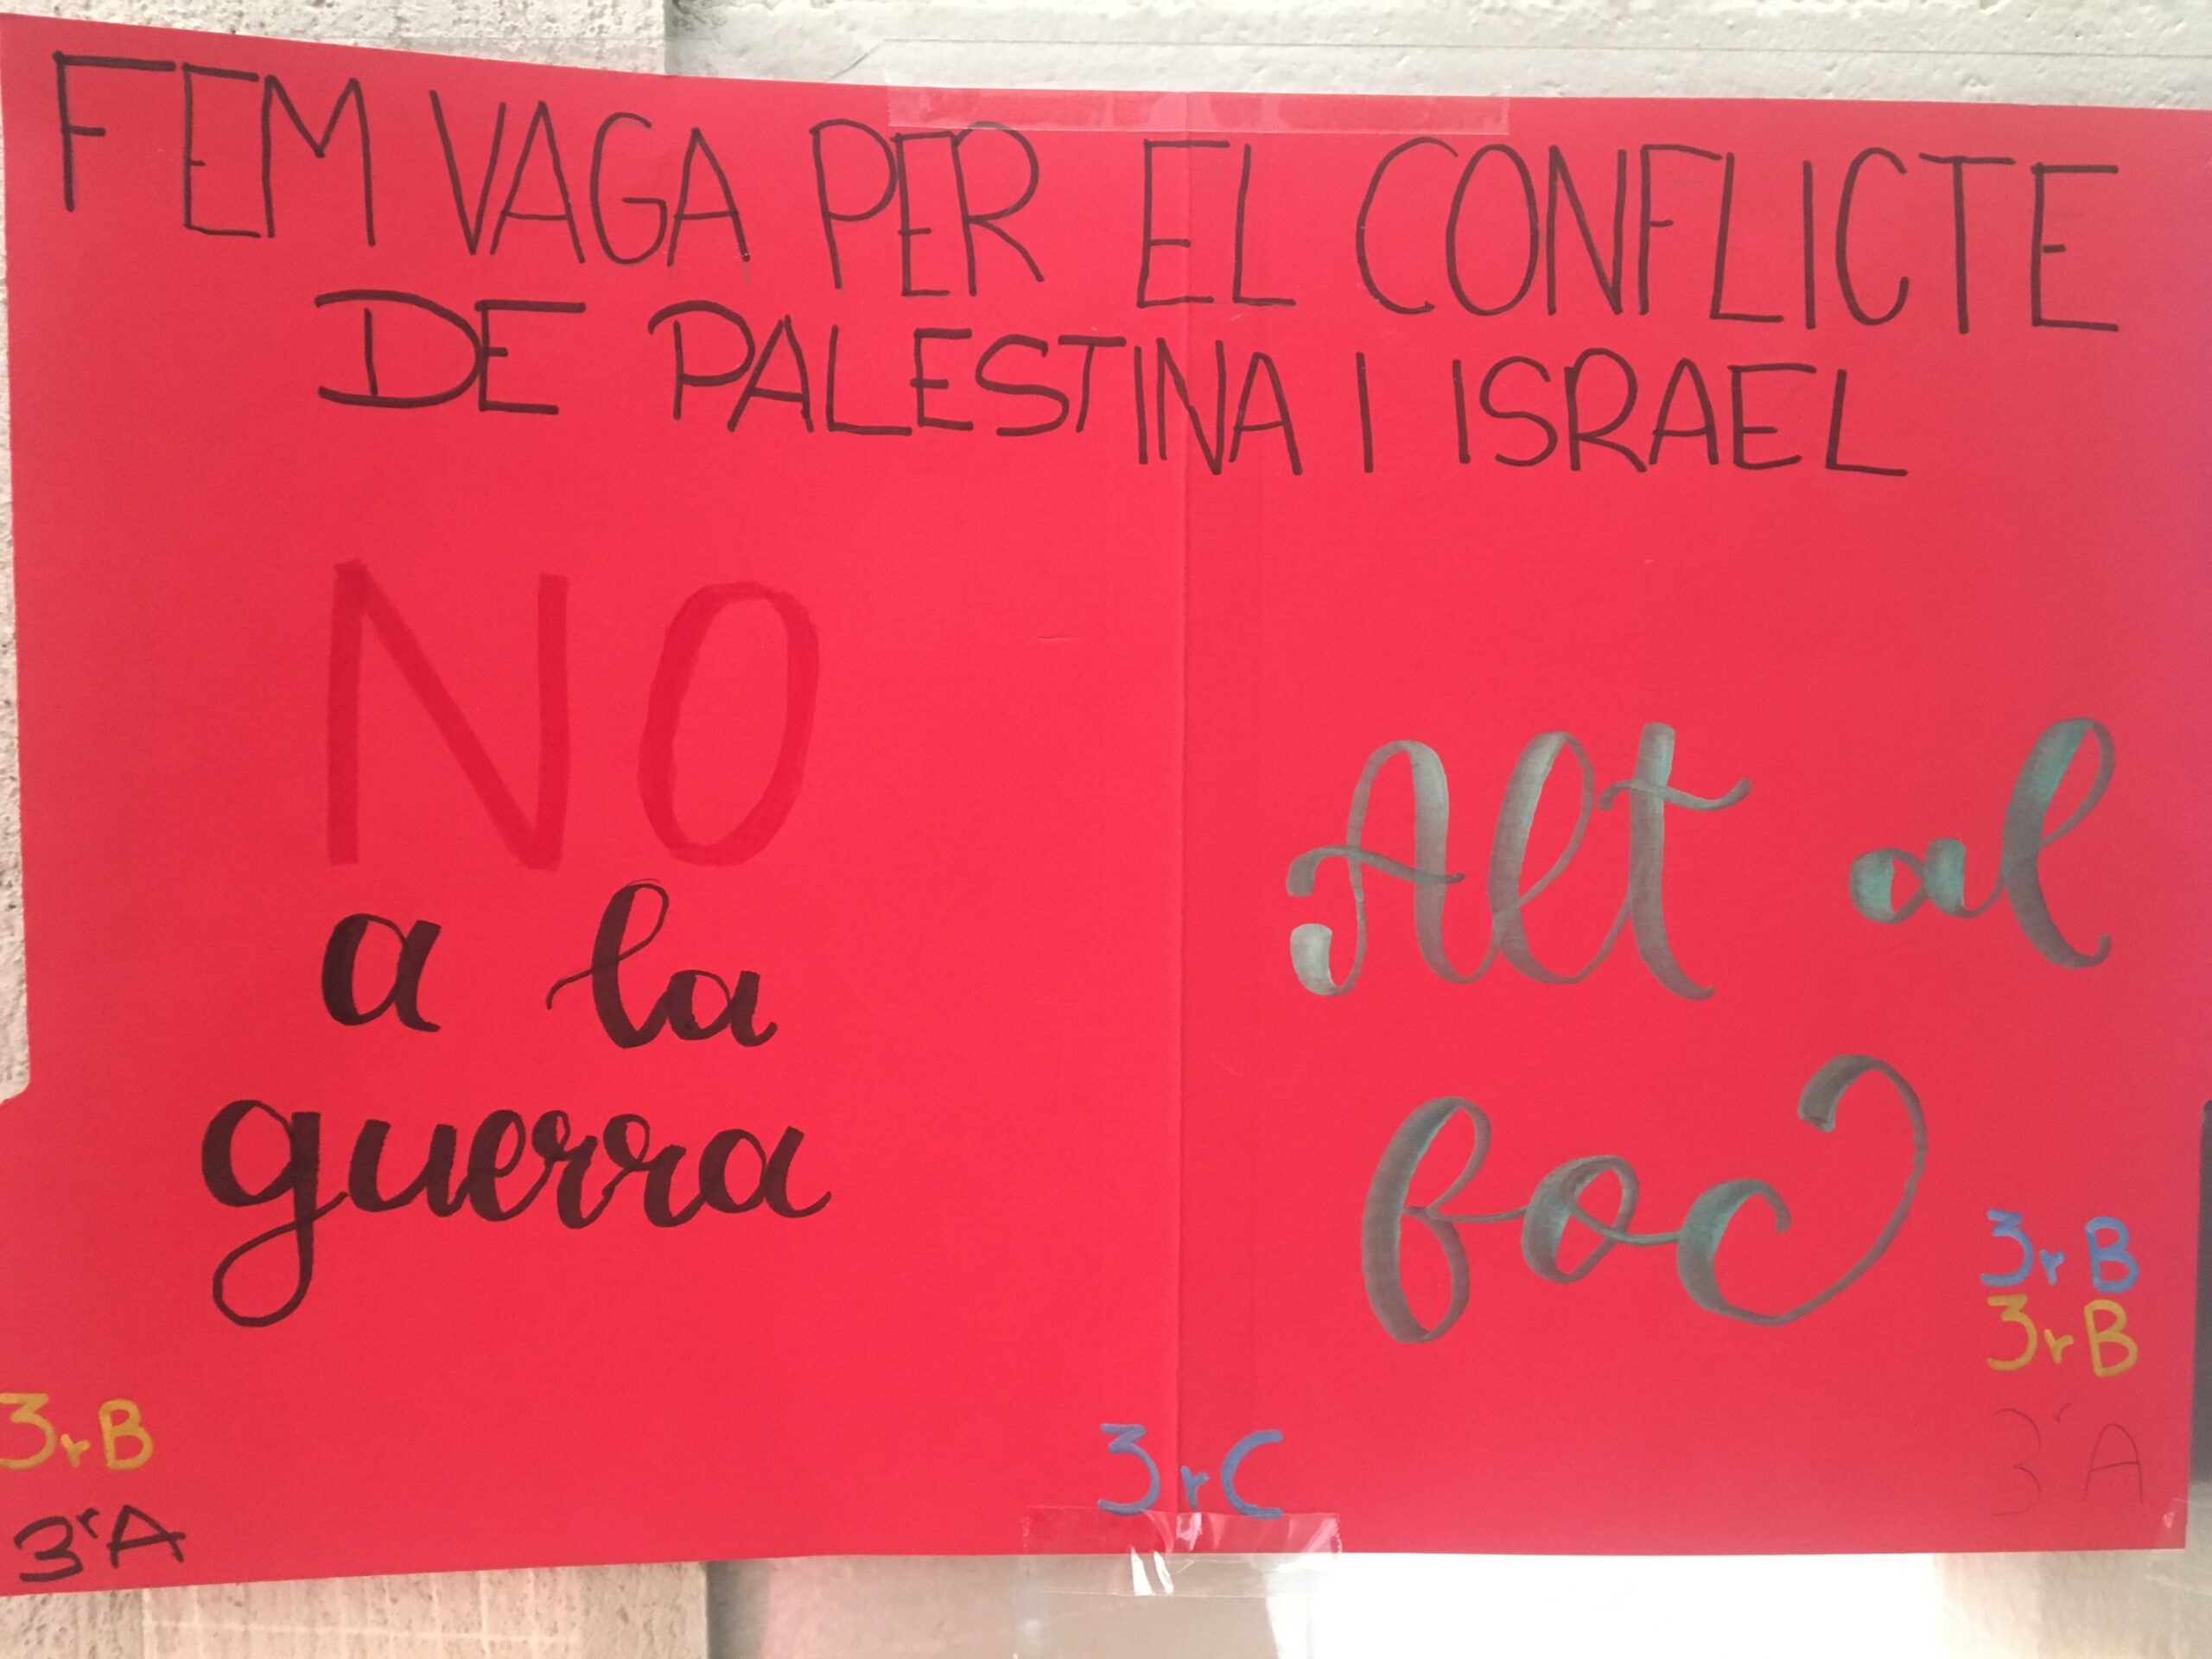 FEM VAGA PER EL CONFLICTE
DE PALESTINA I ISRAEL
NO
a la
guerra
Alt al
foc
3rB
3rB
3rA
3rC
3rB
3rA